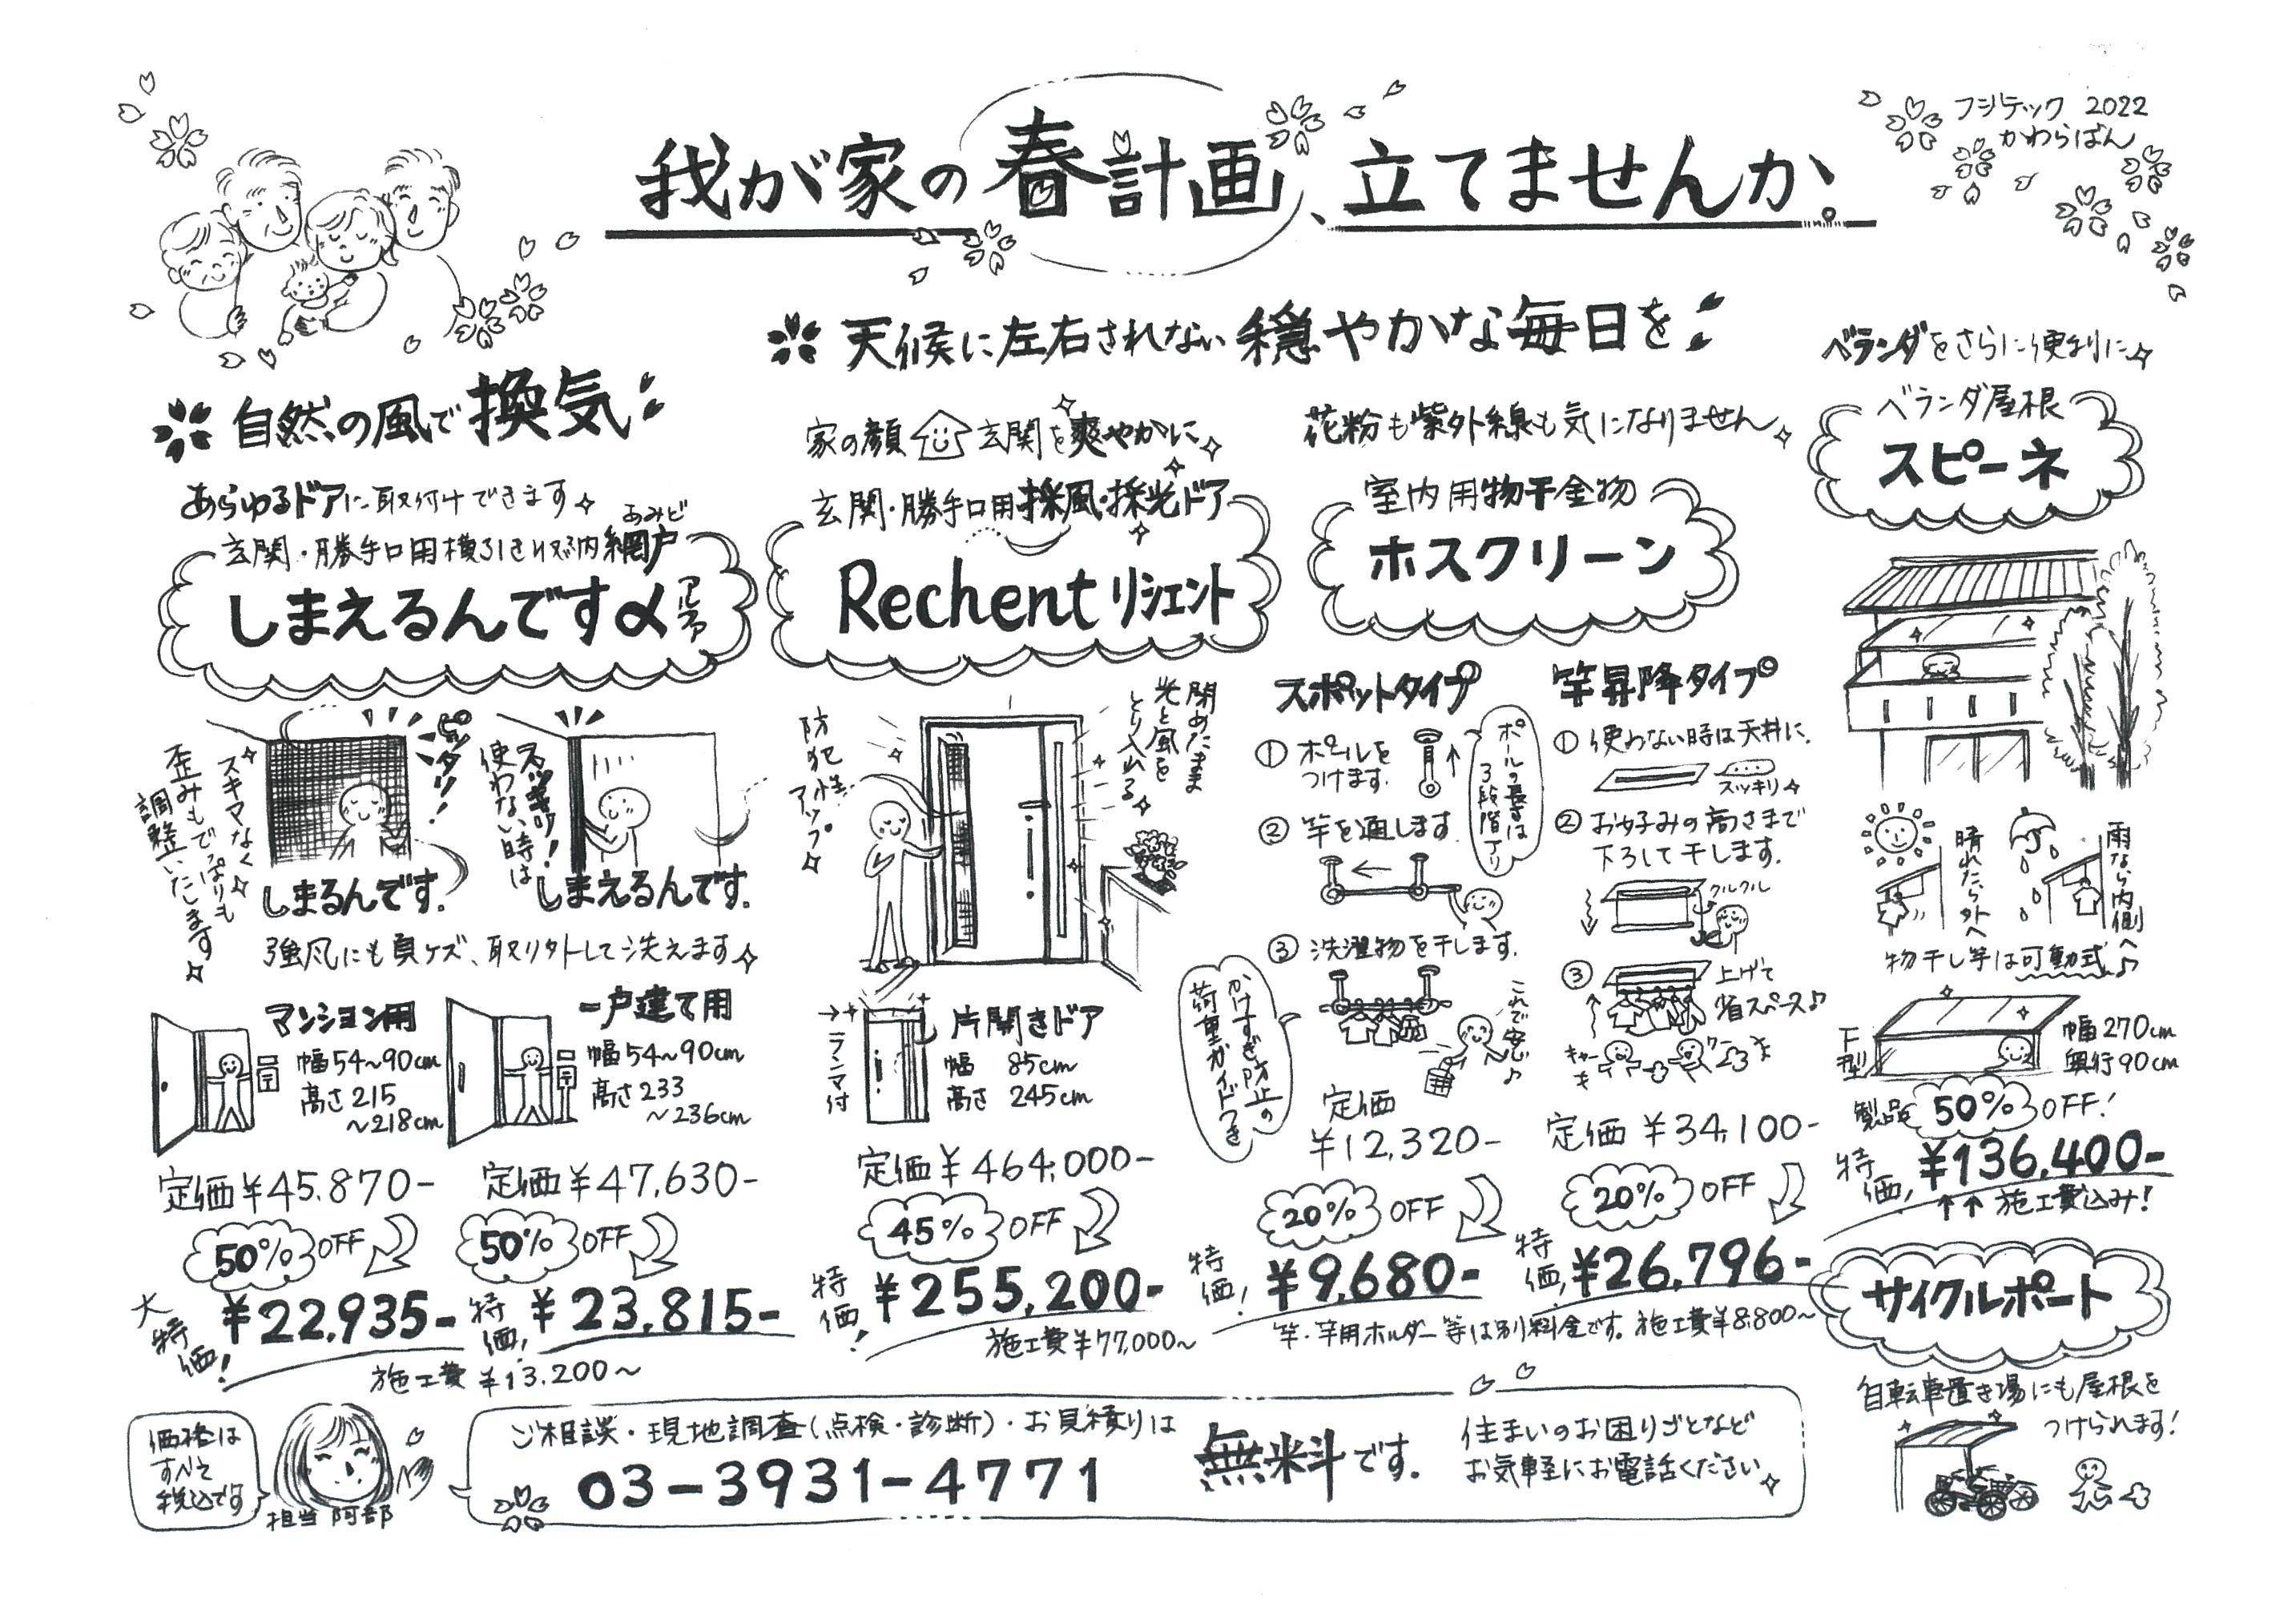 フジテック 2022
かわらばん
我が家の春計画、立てませんか。
自然の風で換気
あらゆるドアに取付けできます
あみど
玄関・勝手口用横引き収納網戸
しまえるんですα
アルファ
ピッタリ!
スキマなく
歪みもでっぱりも
調整いたします
しまるんです。
使わない時は
スッキリ!
しまえるんです。
強風にも負ケズ、取り外しして洗えます
マンション用
幅54~90cm
高さ215
~218cm
定価¥45,870-
50%OFF
大特価!
¥22,935-
一戸建て用
幅54~90cm
高さ233
~236cm
定価¥47,630-
50%OFF
特価!
¥23,815-
施工費¥13,200~
天候に左右されない穏やかな毎日を
家の顔玄関を爽やかに
玄関・勝手口用採風・採光ドア
Rechent リシェント
防犯性
アップ
閉めたまま
光と風を
とり入れる
ランマ付
片開きドア
幅 85cm
高さ 245cm
定価¥464,000-
45%OFF
特価!
¥255,200-
施工費¥77,000~
花粉も紫外線も気になりません
室内用物干金物
ホスクリーン
スポットタイプ
① ポールを
つけます。
ポールの長さは
3段階アリ
② 竿を通します
③ 洗濯物を干します。
かけすぎ防止の
荷重ガイドつき
これで安心♪
定価
¥12,320-
20%OFF
特価!
¥9,680-
竿昇降タイプ
① 使わない時は天井に。
スッキリ
② お好みの高さまで
下ろして干します。
クルクル
③ 上げて
省スペース♪
キャーキャ
定価¥34,100-
20%OFF
特価!
¥26,796-
竿・竿用ホルダー等は別料金です。施工費¥8,800~
ベランダをさらに便利に
ベランダ屋根
スピーネ
晴れたら外へ
雨なら内側へ
物干し竿は可動式♪
F型
幅270cm
奥行90cm
製品50%OFF!
特価!
¥136,400-
↑↑施工費込み!
サイクルポート
自転車置き場にも屋根を
つけられます!
価格は
すべて
税込です
担当 阿部
ご相談・現地調査(点検・診断)・お見積りは
03-3931-4771
無料です。
住まいのお困りごとなど
お気軽にお電話ください